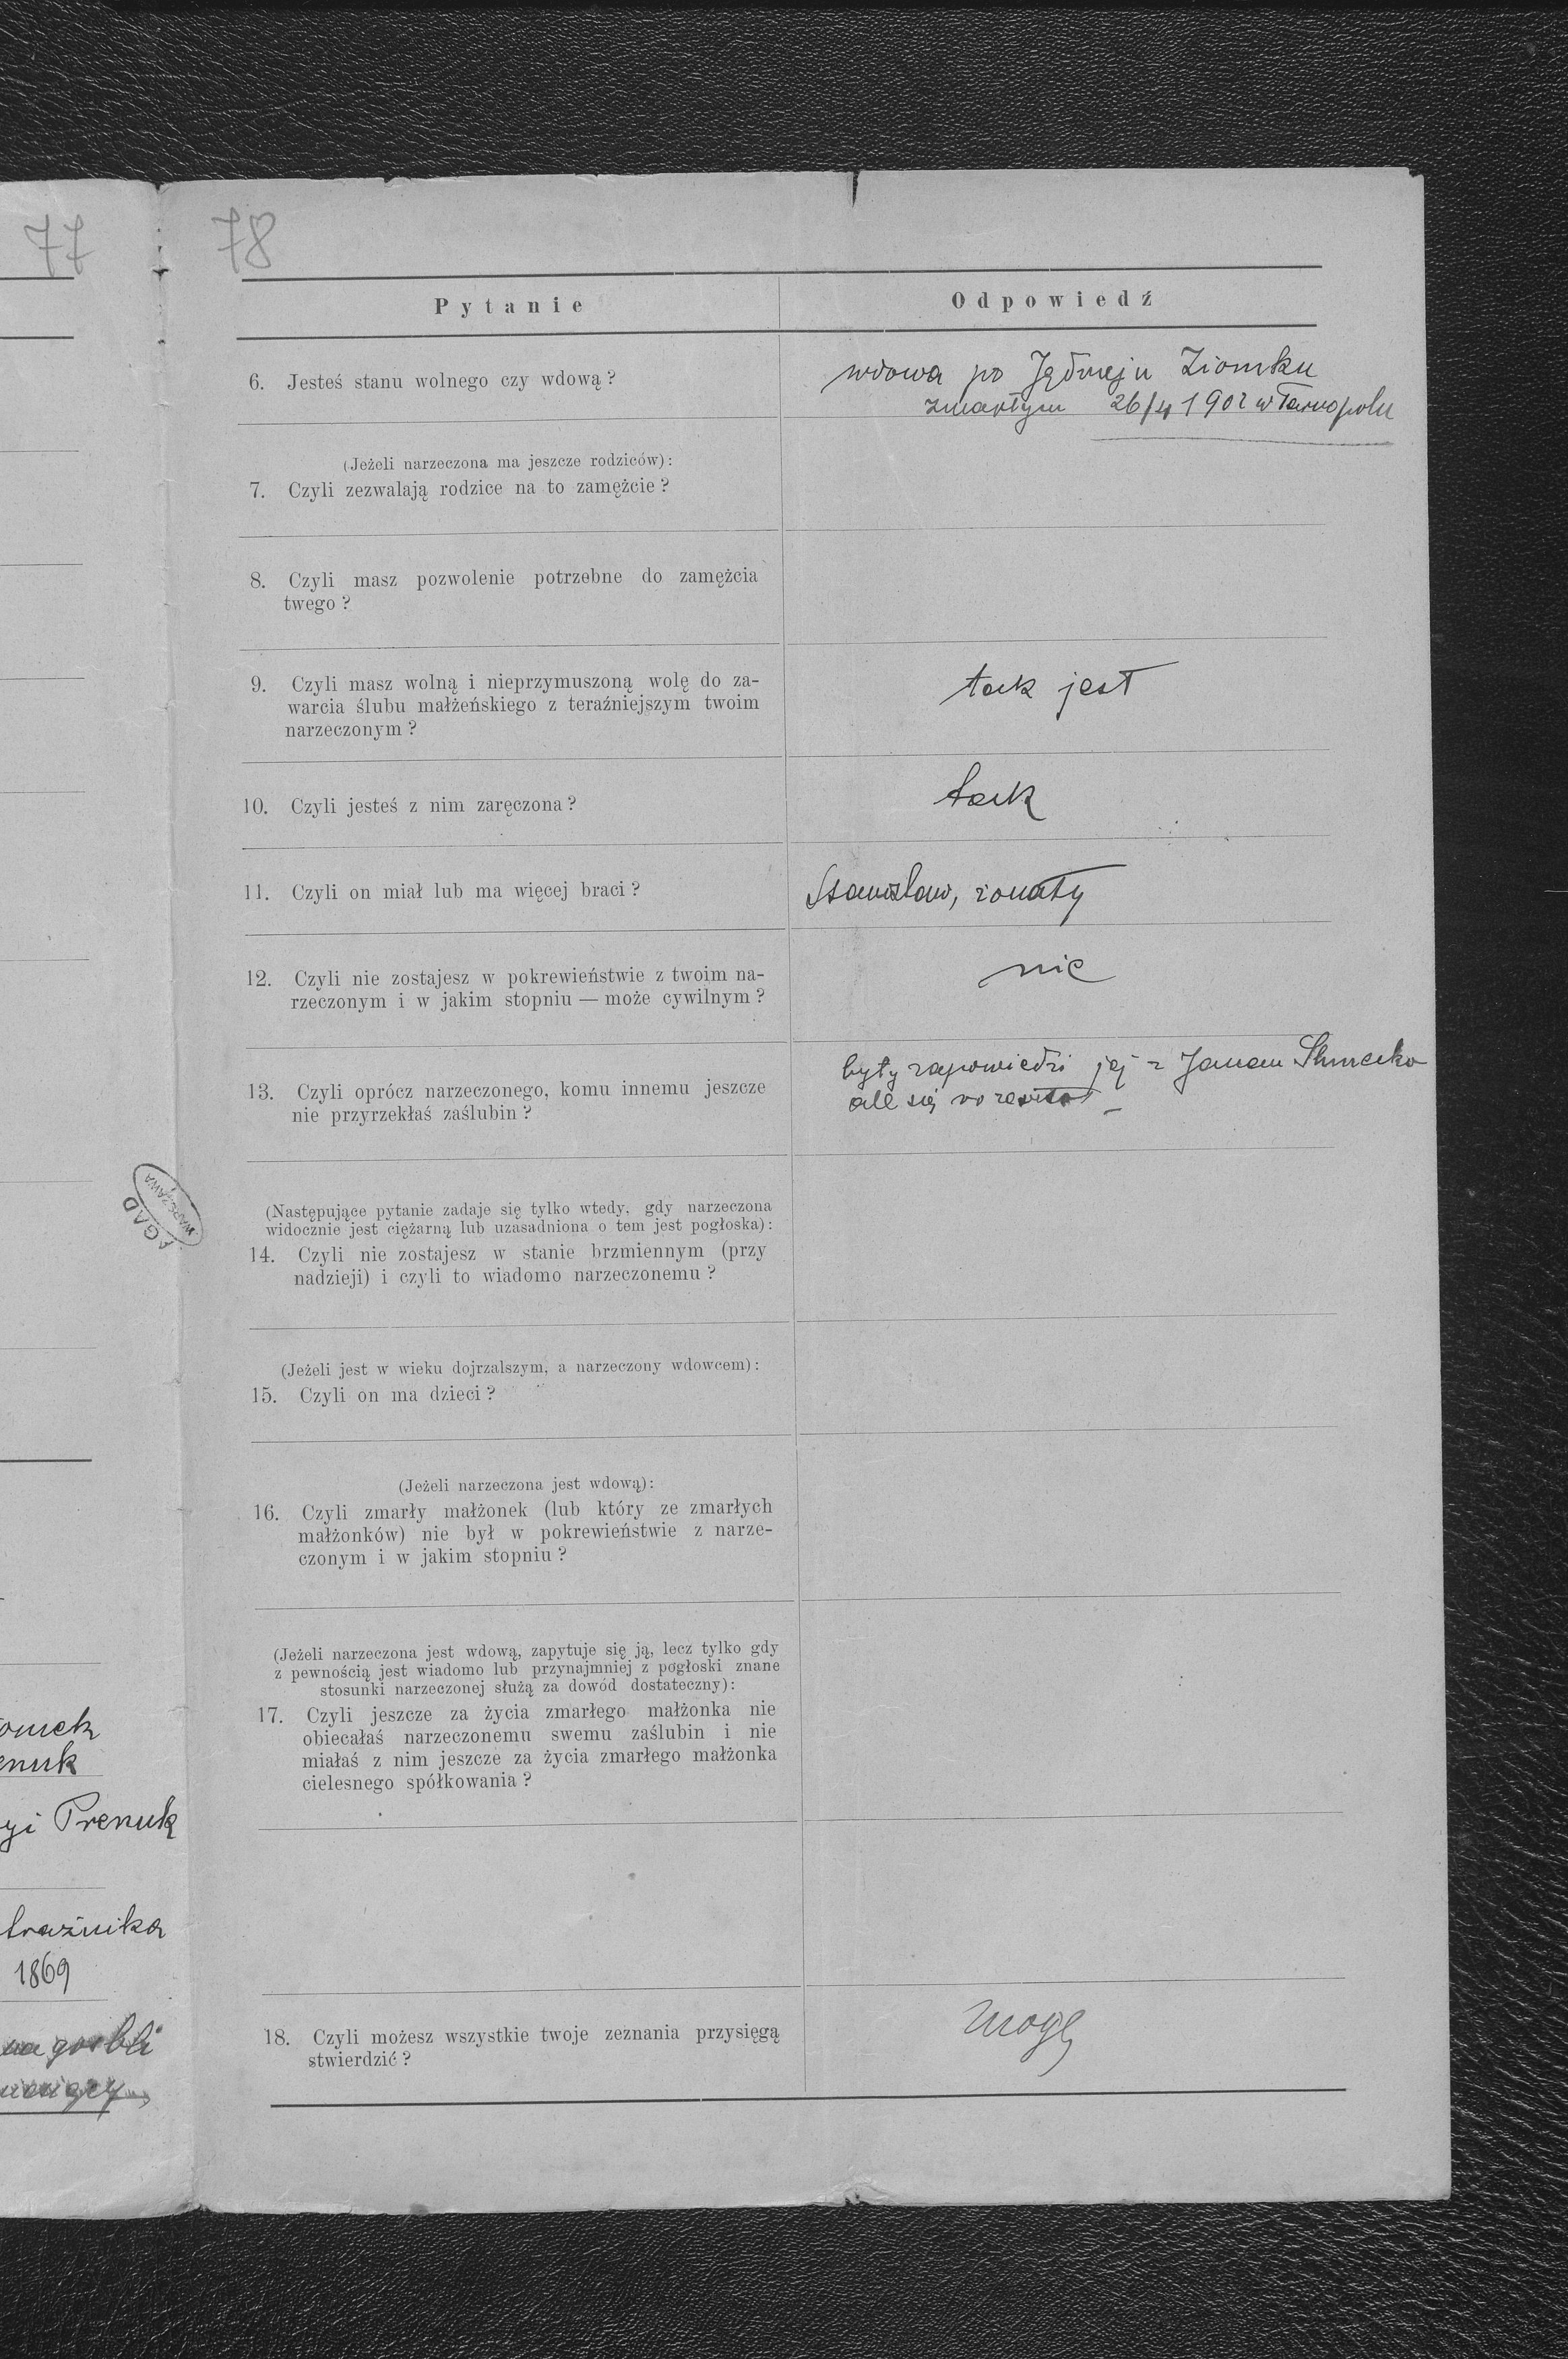 77
78
Pytanie
Odpowiedź
6. Jesteś stanu wolnego czy wdową?
wdowa po Jędrzeju Ziomku
zmarłym 26/4 1902 w Tarnopolu
(Jeżeli narzeczona ma jeszcze rodziców):
7. Czyli zezwalają rodzice na to zamęźcie?
8. Czyli masz pozwolenie potrzebne do zamężcia
twego?
9. Czyli masz wolną i nieprzymuszoną wolę do za-
warcia ślubu małżeńskiego z teraźniejszym twoim
narzeczonym?
tak jest
10. Czyli jesteś z nim zaręczona?
tak
11. Czyli on miał lub ma więcej braci?
Stanisław, żonaty
12. Czyli nie zostajesz w pokrewieństwie z twoim na-
rzeczonym i w jakim stopniu — może cywilnym?
nie
13. Czyli oprócz narzeczonego, komu innemu jeszcze
nie przyrzekłaś zaślubin?
były zapowiedzi jej z Janem
ale się
AGAD
WARSZAWA
(Następujące pytanie zadaje się tylko wtedy, gdy narzeczona
widocznie jest ciężarną lub uzasadniona o tem jest pogłoska):
14. Czyli nie zostajesz w stanie brzmiennym (przy
nadzieji) i czyli to wiadomo narzeczonemu?
(Jeżeli jest w wieku dojrzalszym, a narzeczony wdowcem):
15. Czyli on ma dzieci?
(Jeżeli narzeczona jest wdową):
16. Czyli zmarły małżonek (lub który ze zmarłych
małżonków) nie był w pokrewieństwie z narze-
czonym i w jakim stopniu?
(Jeżeli narzeczona jest wdową, zapytuje się ją, lecz tylko gdy
z pewnością jest wiadomo lub przynajmniej z pogłoski znane
stosunki narzeczonej służą za dowód dostateczny):
17. Czyli jeszcze za życia zmarłego małżonka nie
obiecałaś narzeczonemu swemu zaślubin i nie
miałaś z nim jeszcze za życia zmarłego małżonka
cielesnego spółkowania?
omek
enuk
yi Prenuk
trażnika
1869
18. Czyli możesz wszystkie twoje zeznania przysięgą
stwierdzić?
mogę